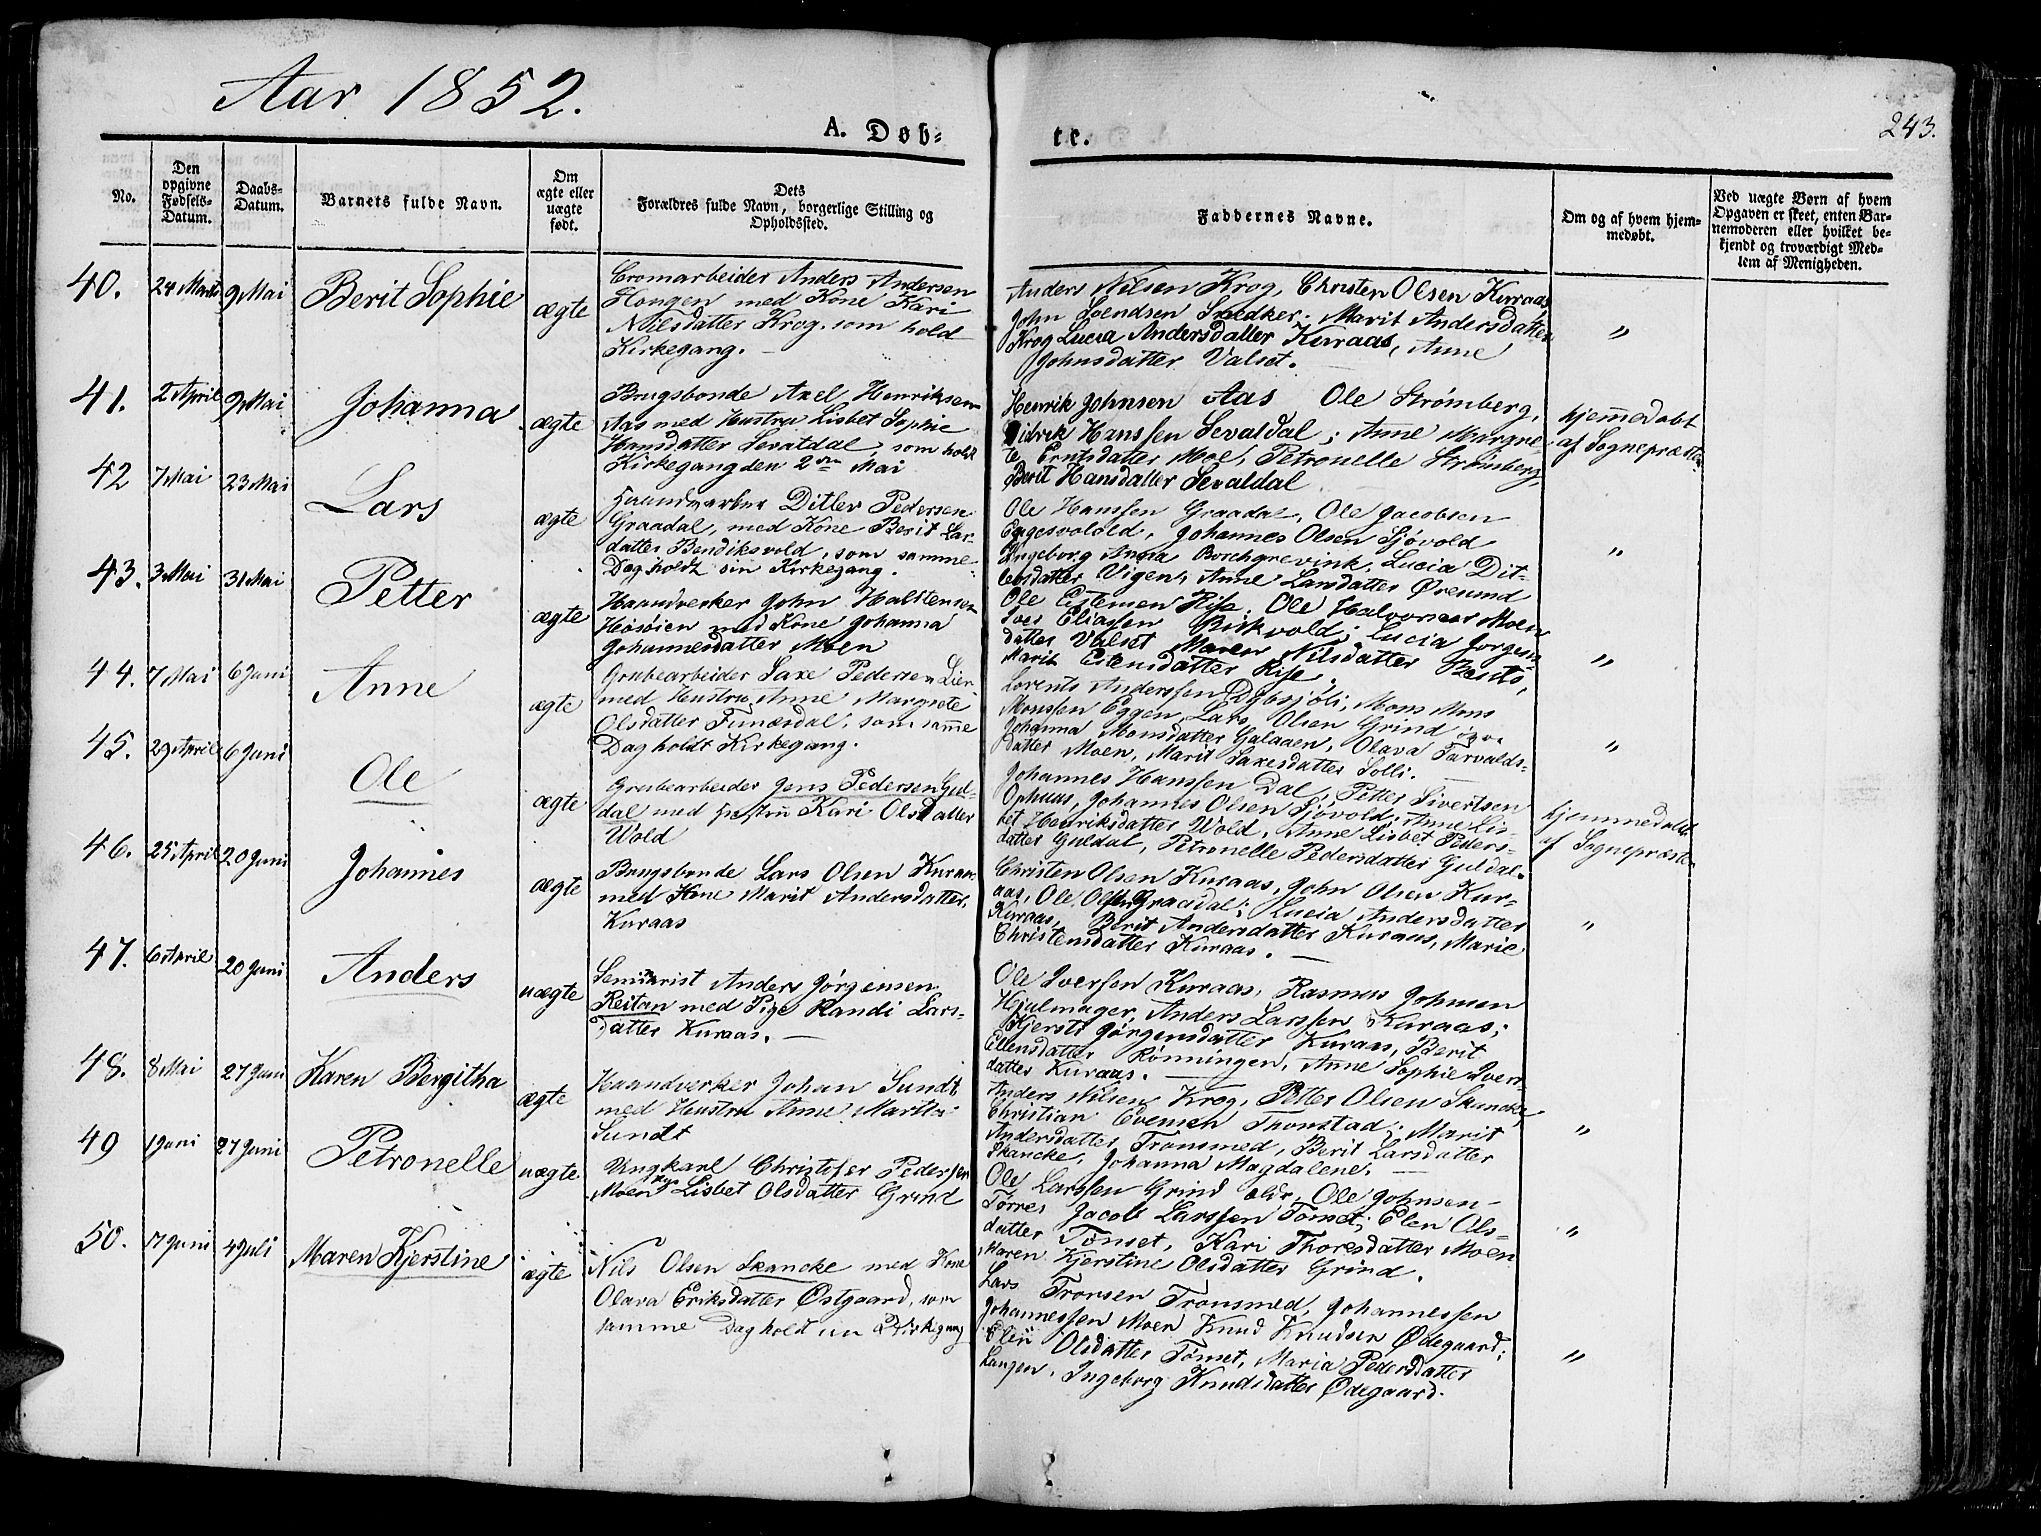 Aar 1852.
A. Døb-
te.
243.
No.
Den opgivne Fødsels-Datum.
Daabs-Datum.
Barnets fulde Navn.
Om ægte eller uægte født.
Dets
Forældres fulde Navn, borgerlige Stilling og
Opholdssted.
Faddernes Navne.
Om og af hvem hjem-
medøbt.
Ved uægte Børn af hvem
Opgaven er skeet, enten Bar-
nemoderen eller hvilket be-
kjendt og troværdigt Med-
lem af Menigheden.
40. 24 Marts 9 Mai Berit Sophie ægte
Cromarbeider Anders Andersen
Haugen med Kone Kari
Nilsdatter Krog, som hold
Kirkegang. —
Anders Nilsen Krog, Christen Olsen Kuraas,
John Svendsen Snedker; Marit Andersdatter
Krog Lucia Andersdatter Kuraas, Anne
Johnsdatter Valset. —
"
41. 2 April 9 Mai Johanna ægte
Brugsbonde Axel Henriksen
Aas med Hustru Lisbet Sophie
Hansdatter Sevaldal, som holdt
Kirkegang den 2den Mai
Henrik Johnsen Aas Ole Strømberg,
Didrik Hanssen Sevaldal; Anne Margre-
te Erntsdatter Moe, Petronelle Strømberg,
Berit Hansdatter Sevaldal
hjemmedøbt
af Sognepræsten
42 7 Mai 23 Mai Lars ægte
Haandverker Ditlev Pedersen
Graadal, med Kone Berit Lar-
datter Bendiksvold, som samme
Dag holdt sin Kirkegang.
Ole Hanssen Graadal, Ole Jacobsen
Engesvolded, Johannes Olsen Sjøvold
Ingeborg Anna Borchgrevink, Lucia Dit-
levsdatter Vigen, Anne Larsdatter Øresund
"
43. 3 Mai 31 Mai Petter ægte
Haandverker John Halstensen
Høsøien med Kone Johanna
Johannesdatter Moen
Ole Estensen Rise, Ole Halvorsen Moen
Iver Eliassen Birkvold; Lucia Jorgens-
datter Valset Maren Nilsdatter
Marit Estensdatter Rise,
"
44. 7 Mai 6 Juni Anne ægte
Grubearbeider Saxe Pedersen Lien
med Hustru Anne Margrete
Olsdatter Funæsdal, som samme
Dag holdt Kirkegang.
Lorents Anderssen Dybsjøli, Mons Mons
Monssen Eggen, Lars Olsen Grind
Johanna Monsdatter Galaaen, Olava Tarvalds-
datter Moen, Marit Saxesdatter Solli.
"
45. 29 April 6 Juni Ole ægte
Grubearbeider Jens Pedersen Gul-
dal med Hustru Kari Olsdatter
Wold
Johannes Hanssen Dal, Petter Sivertsen
Ophuus, Johannes Olsen Sjøvold; Anne Lis-
bet Henriksdatter Wold, Anne Lisbet Peders-
datter Guldal, Petronelle Pedersdatter Guldal.
hjemmedøbt
af Sognepræsten
46. 25 April 20 Juni Johannes ægte
Brugsbonde Lars Olsen Kuraas
med Kone Marit Andersdatter
Kuraas
Christen Olsen Kuraas, John Olsen Kur-
aas, Ole Olsen Graadal; Lucia Andersdatter
Kuraas, Berit Andersdatter Kuraas, Marie
Christensdatter Kuraas. —
"
47. 6 April 20 Juni Anders uægte
Seminarist Anders Jørgensen
Reitan med Pige Randi Lars-
datter Kuraas. —
Ole Iversen Kuraas, Rasmus Johnsen
Hjulmager, Anders Larssen Kuraas;
Kjersti Jørgensdatter Kuraas, Berit
Ellensdatter Rønningen, Anne Sophie Iver-
datter Kuraas. —
48. 8 Mai 27 Juni Karen Bergitha ægte
Haandverker Johan Sundt
med Hustru Anne Martha
Sundt
Anders Nilsen Krog, Petter Olsen Skancke,
Christian Evensen Thonstad; Marit
Andersdatter Tronsmed, Berit Larsdatter
Skancke, Johanna Magdalene. —
"
49 1 Juni 27 Juni Petronelle uægte
Ungkarl Christofer Pedersen
Moen Lisbet Olsdatter Grind
Ole Larssen Grind Ole Johnsen
Torres Jacob Larssen Tømset; Elen Ols-
datter Tømset, Kari Thoresdatter Moen
Maren Kjerstine Olsdatter Grind.
"
50. 7 Juni 4 Juli Maren Kjerstine ægte
Nils Olsen Skancke med Kone
Olava Eriksdatter Østgaard, som
samme Dag holdt sin Kirkegang
Lars Tronsen Tronsmed, Johannessen
Johannessen Moen Knud Knudsen Ødegaard;
Elen Olsdatter Tømset, Maria Pedersdatter
Langen, Ingeborg Knudsdatter Ødegaard.
"